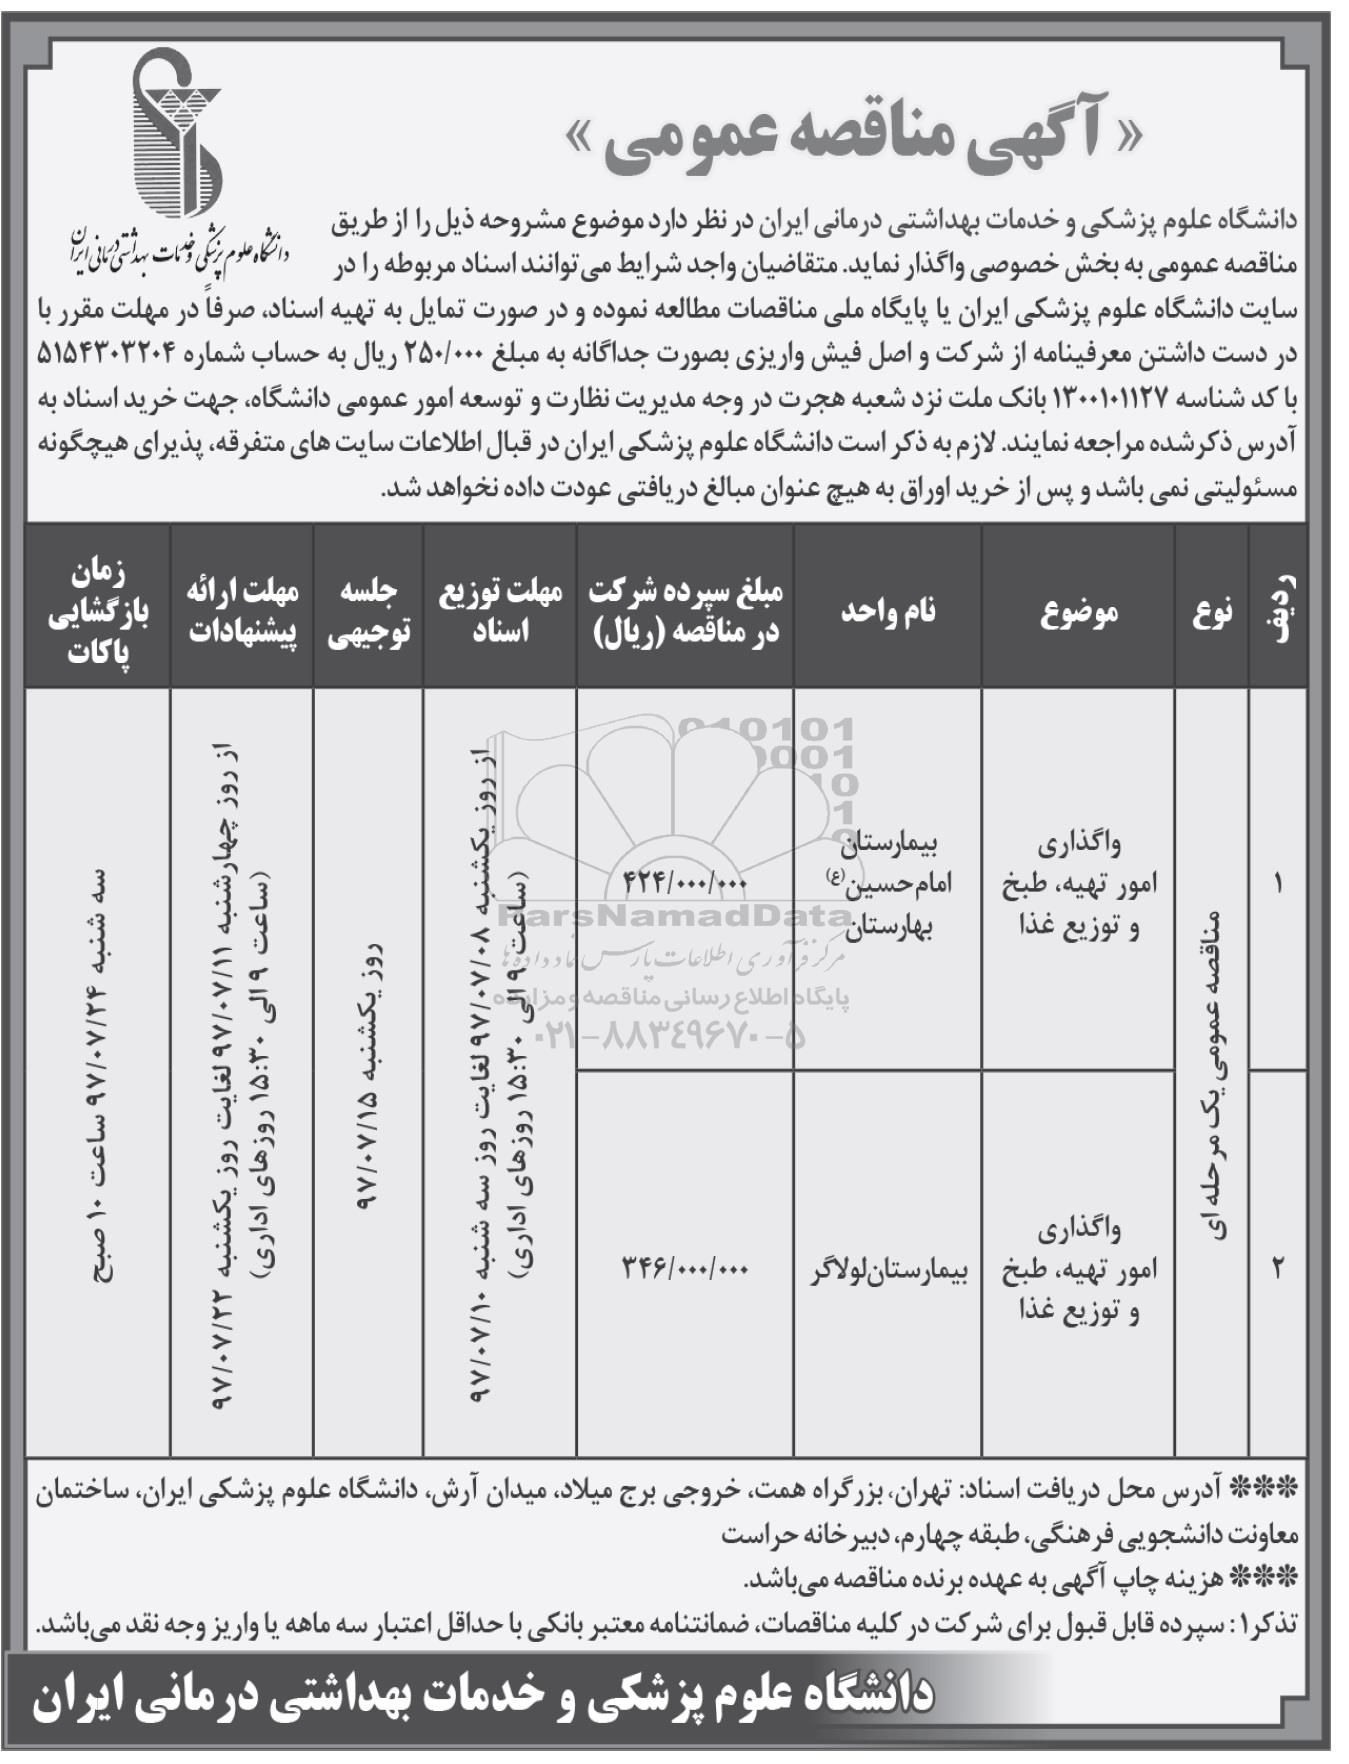 « آگهی مناقصه عمومی »
دانشگاه علوم پزشکی و خدمات بهداشتی درمانی ایران
دانشگاه علوم پزشکی و خدمات بهداشتی درمانی ایران در نظر دارد موضوع مشروحه ذیل را از طریق
مناقصه عمومی به بخش خصوصی واگذار نماید. متقاضیان واجد شرایط می‌توانند اسناد مربوطه را در
سایت دانشگاه علوم پزشکی ایران یا پایگاه ملی مناقصات مطالعه نموده و در صورت تمایل به تهیه اسناد، صرفاً در مهلت مقرر با
در دست داشتن معرفینامه از شرکت و اصل فیش واریزی بصورت جداگانه به مبلغ ۲۵۰/۰۰۰ ریال به حساب شماره ۵۱۵۴۳۰۳۲۰۴
با کد شناسه ۱۳۰۰۱۰۱۱۲۷ بانک ملت نزد شعبه هجرت در وجه مدیریت نظارت و توسعه امور عمومی دانشگاه، جهت خرید اسناد به
آدرس ذکرشده مراجعه نمایند. لازم به ذکر است دانشگاه علوم پزشکی ایران در قبال اطلاعات سایت های متفرقه، پذیرای هیچگونه
مسئولیتی نمی باشد و پس از خرید اوراق به هیچ عنوان مبالغ دریافتی عودت داده نخواهد شد.
ردیف
نوع
موضوع
نام واحد
مبلغ سپرده شرکت
در مناقصه (ریال)
مهلت توزیع
اسناد
جلسه
توجیهی
مهلت ارائه
پیشنهادات
زمان
بازگشایی
پاکات
۱
مناقصه عمومی یک مرحله ای
واگذاری
امور تهیه، طبخ
و توزیع غذا
بیمارستان
امام‌حسین(ع)
بهارستان
۴۲۴/۰۰۰/۰۰۰
از روز یکشنبه ۹۷/۰۷/۰۸ لغایت روز سه شنبه ۹۷/۰۷/۱۰
(ساعت ۹ الی ۱۵:۳۰ روزهای اداری)
روز یکشنبه ۹۷/۰۷/۱۵
از روز چهارشنبه ۹۷/۰۷/۱۱ لغایت روز یکشنبه ۹۷/۰۷/۲۲
(ساعت ۹ الی ۱۵:۳۰ روزهای اداری)
سه شنبه ۹۷/۰۷/۲۴ ساعت ۱۰ صبح
۲
واگذاری
امور تهیه، طبخ
و توزیع غذا
بیمارستان‌لولاگر
۳۴۶/۰۰۰/۰۰۰
ParsNamadData
مرکز فرآوری اطلاعات پارس نماد داده ها
پایگاه اطلاع رسانی مناقصه و مزایده
۰۲۱-۸۸۳۴۹۶۷۰-۵
*** آدرس محل دریافت اسناد: تهران، بزرگراه همت، خروجی برج میلاد، میدان آرش، دانشگاه علوم پزشکی ایران، ساختمان
معاونت دانشجویی فرهنگی، طبقه چهارم، دبیرخانه حراست
*** هزینه چاپ آگهی به عهده برنده مناقصه می‌باشد.
تذکر۱: سپرده قابل قبول برای شرکت در کلیه مناقصات، ضمانتنامه معتبر بانکی با حداقل اعتبار سه ماهه یا واریز وجه نقد می‌باشد.
دانشگاه علوم پزشکی و خدمات بهداشتی درمانی ایران